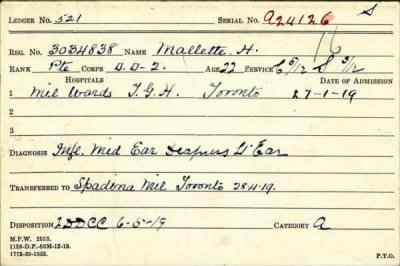 LEDGER No. 521 SERIAL No. A24126 S
16
REG. No. 3034838 NAME Mallette. H.
RANK Pte CORPS D.D-2. AGE 22 SERVICE C 5/12 S 3/12
HOSPITALS DATE OF ADMISSION
1 Mil Wards T.G.H. Toronto 27-1-19
2
3
DIAGNOSIS Infl. Mid Ear Deafness Ear
TRANSFERRED TO Spadina Mil Toronto 28-4-19.
DISPOSITION DDCC 6-5-19 CATEGORY A
M.F.W. 2553.
1126-D.F.-56M-12-18.
1772-39-1322.
P.T.O.